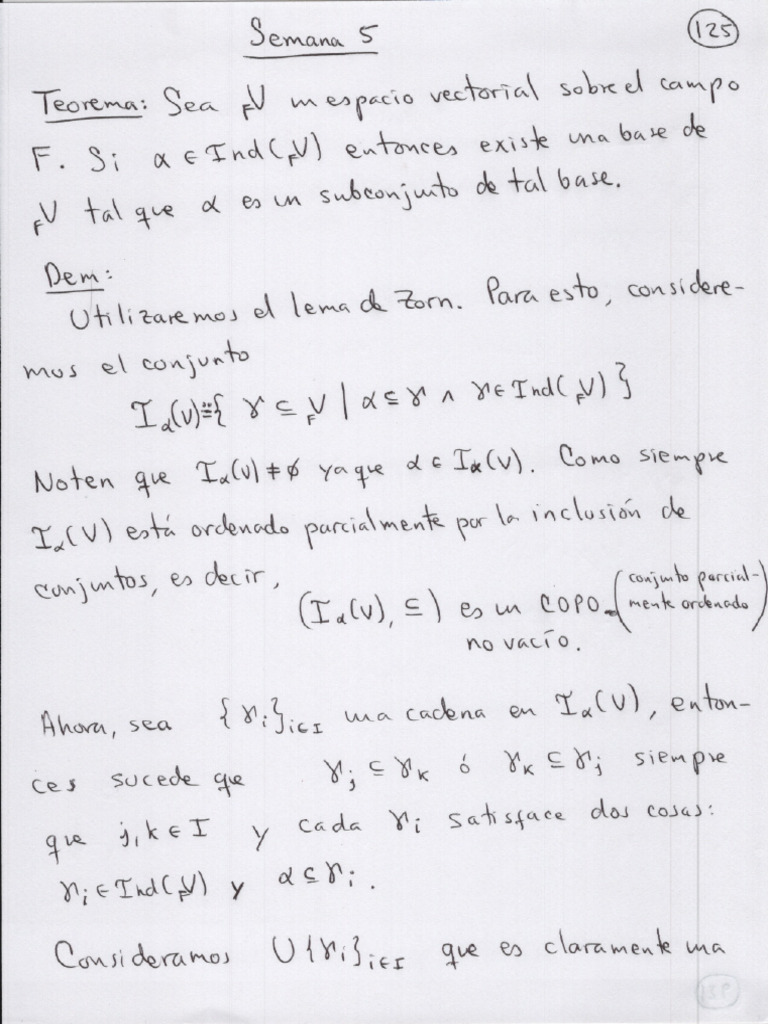 Semana 5
125
Teorema: Sea FV un espacio vectorial sobre el campo
F. Si α ∈ Ind(FV) entonces existe una base de
FV tal que α es un subconjunto de tal base.
Dem:
Utilizaremos el lema de Zorn. Para esto, considere-
mos el conjunto
Iα(V) := { γ ⊆ FV | α ⊆ γ ∧ γ ∈ Ind(FV) }
Noten que Iα(V) ≠ ∅ ya que α ∈ Iα(V). Como siempre
Iα(V) está ordenado parcialmente por la inclusión de
conjuntos, es decir,
(Iα(V), ⊆) es un COPO (conjunto parcial-
mente ordenado)
no vacío.
Ahora, sea {γi}i∈I una cadena en Iα(V), enton-
ces sucede que γj ⊆ γk ó γk ⊆ γj siempre
que j,k ∈ I y cada γi satisface dos cosas:
γi ∈ Ind(FV) y α ⊆ γi.
Consideramos ∪{γi}i∈I que es claramente una